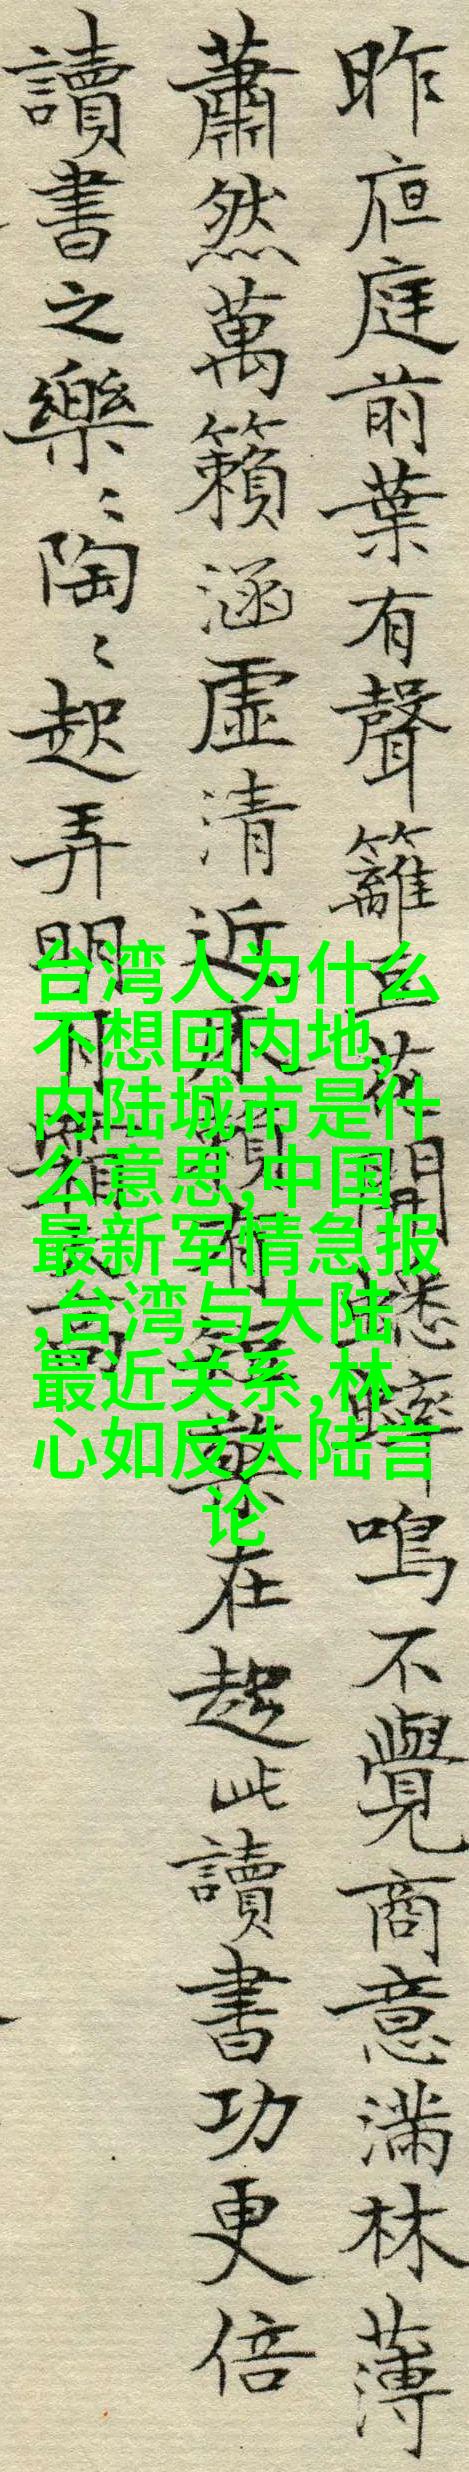 昨夜庭前葉有聲籬豆花開蟋蟀鳴不覺商意滿林薄
蕭然萬籟涵虛清近賴有短檠在趁此讀書功更倍
讀書之樂〻陶〻起弄明月霜高
台湾人为什么
不想回内地,
内陆城市是什
么意思,中国
最新军情急报
,台湾与大陆
最近关系,林
心如反大陆言
论